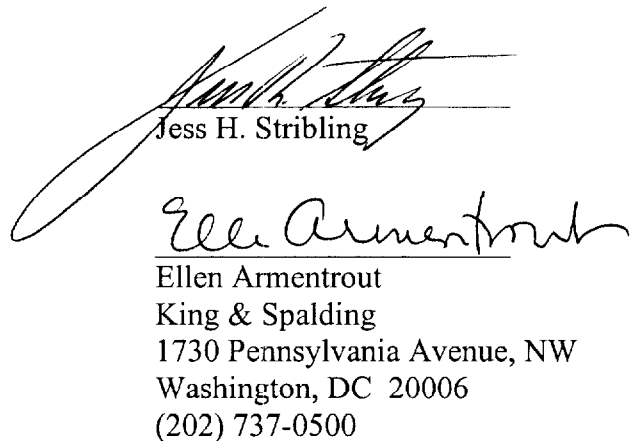 Jess H. Stribling
Ellen Armentrout
Ellen Armentrout
King & Spalding
1730 Pennsylvania Avenue, NW
Washington, DC 20006
(202) 737-0500